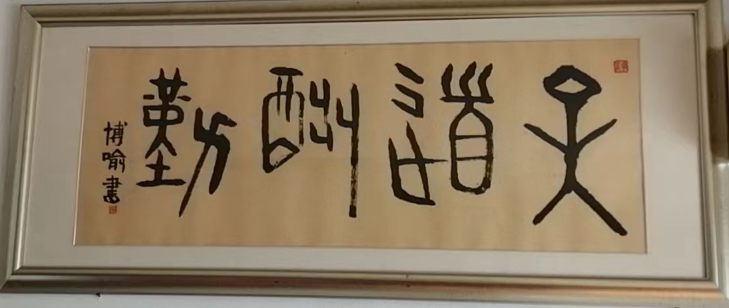 天道酬勤
博喻書